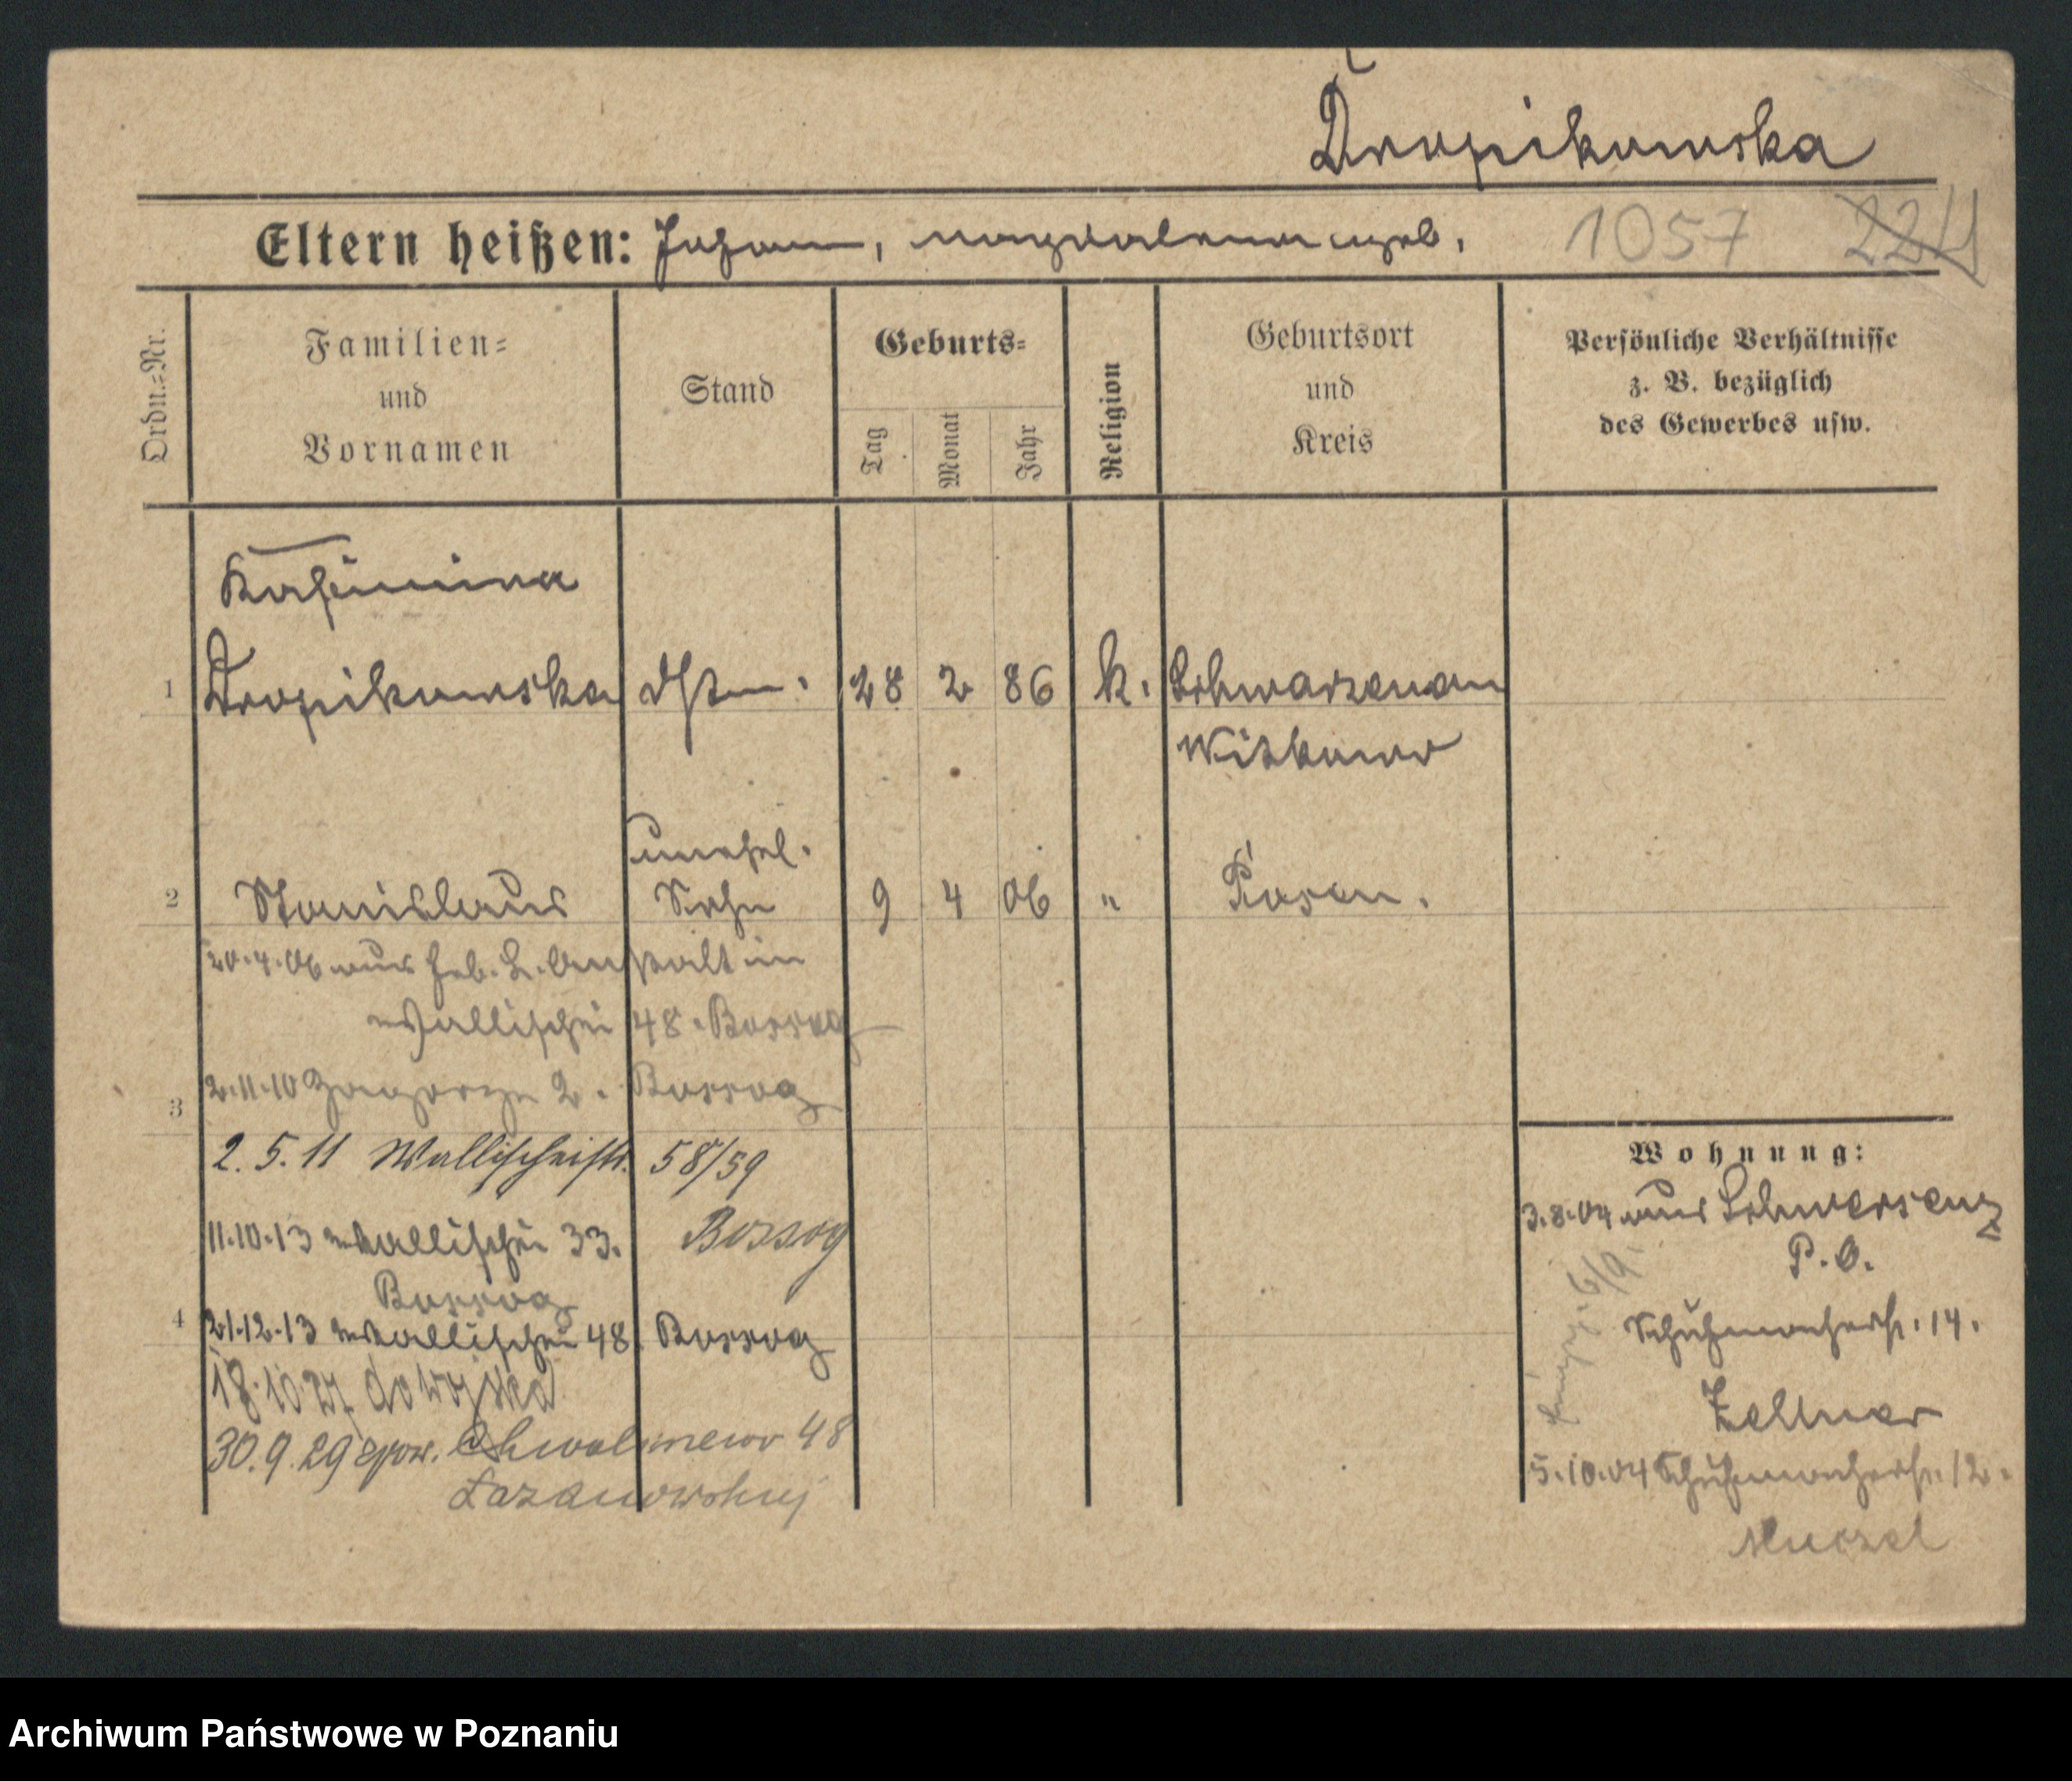 Dropikowska
Eltern heißen: Johann, Magdalena geb. 1057 224
Ordn.=Nr.
Familien=
und
Vornamen
Stand
Geburts=
Tag
Monat
Jahr
Religion
Geburtsort
und
Kreis
Persönliche Verhältnisse
z. B. bezüglich
des Gewerbes usw.
Kasimira
1 Dropikowska 28 2 86 k. Schwarzenau
Witkowo
unehel.
2 Stanislaus Sohn 9 4 06 " Posen.
20.4.06 aus Heb. L. Anstalt in
Wallischei 48. Bossog
3 2.11.10 Zagorze 2. Bossog
2. 5. 11 Wallischeistr. 58/59
11.10.13 Wallischei 33. Bossog
Bossog
4 21.12.13 Wallischei 48. Bossog
18.10.27 do wojska
30.9.29 Chwaliszewo 48
Wohnung:
3.8.04 aus Schwersenz
P. O.
Schuhmacherstr. 14.
Zellner
5.10.04 Schuhmacherstr. 12.
Archiwum Państwowe w Poznaniu